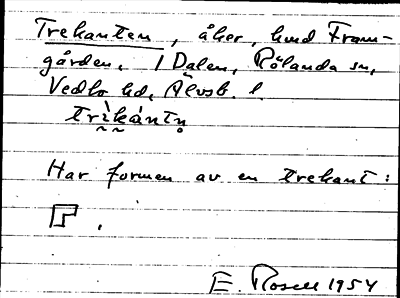 Trekanten, åker, hmd Fram-
gården, i Dalen, Rölanda sn,
Vedbo hd, Älvsb. l.
trìkántn̥
Har formen av en trekant:
.
E. Rosell 1954